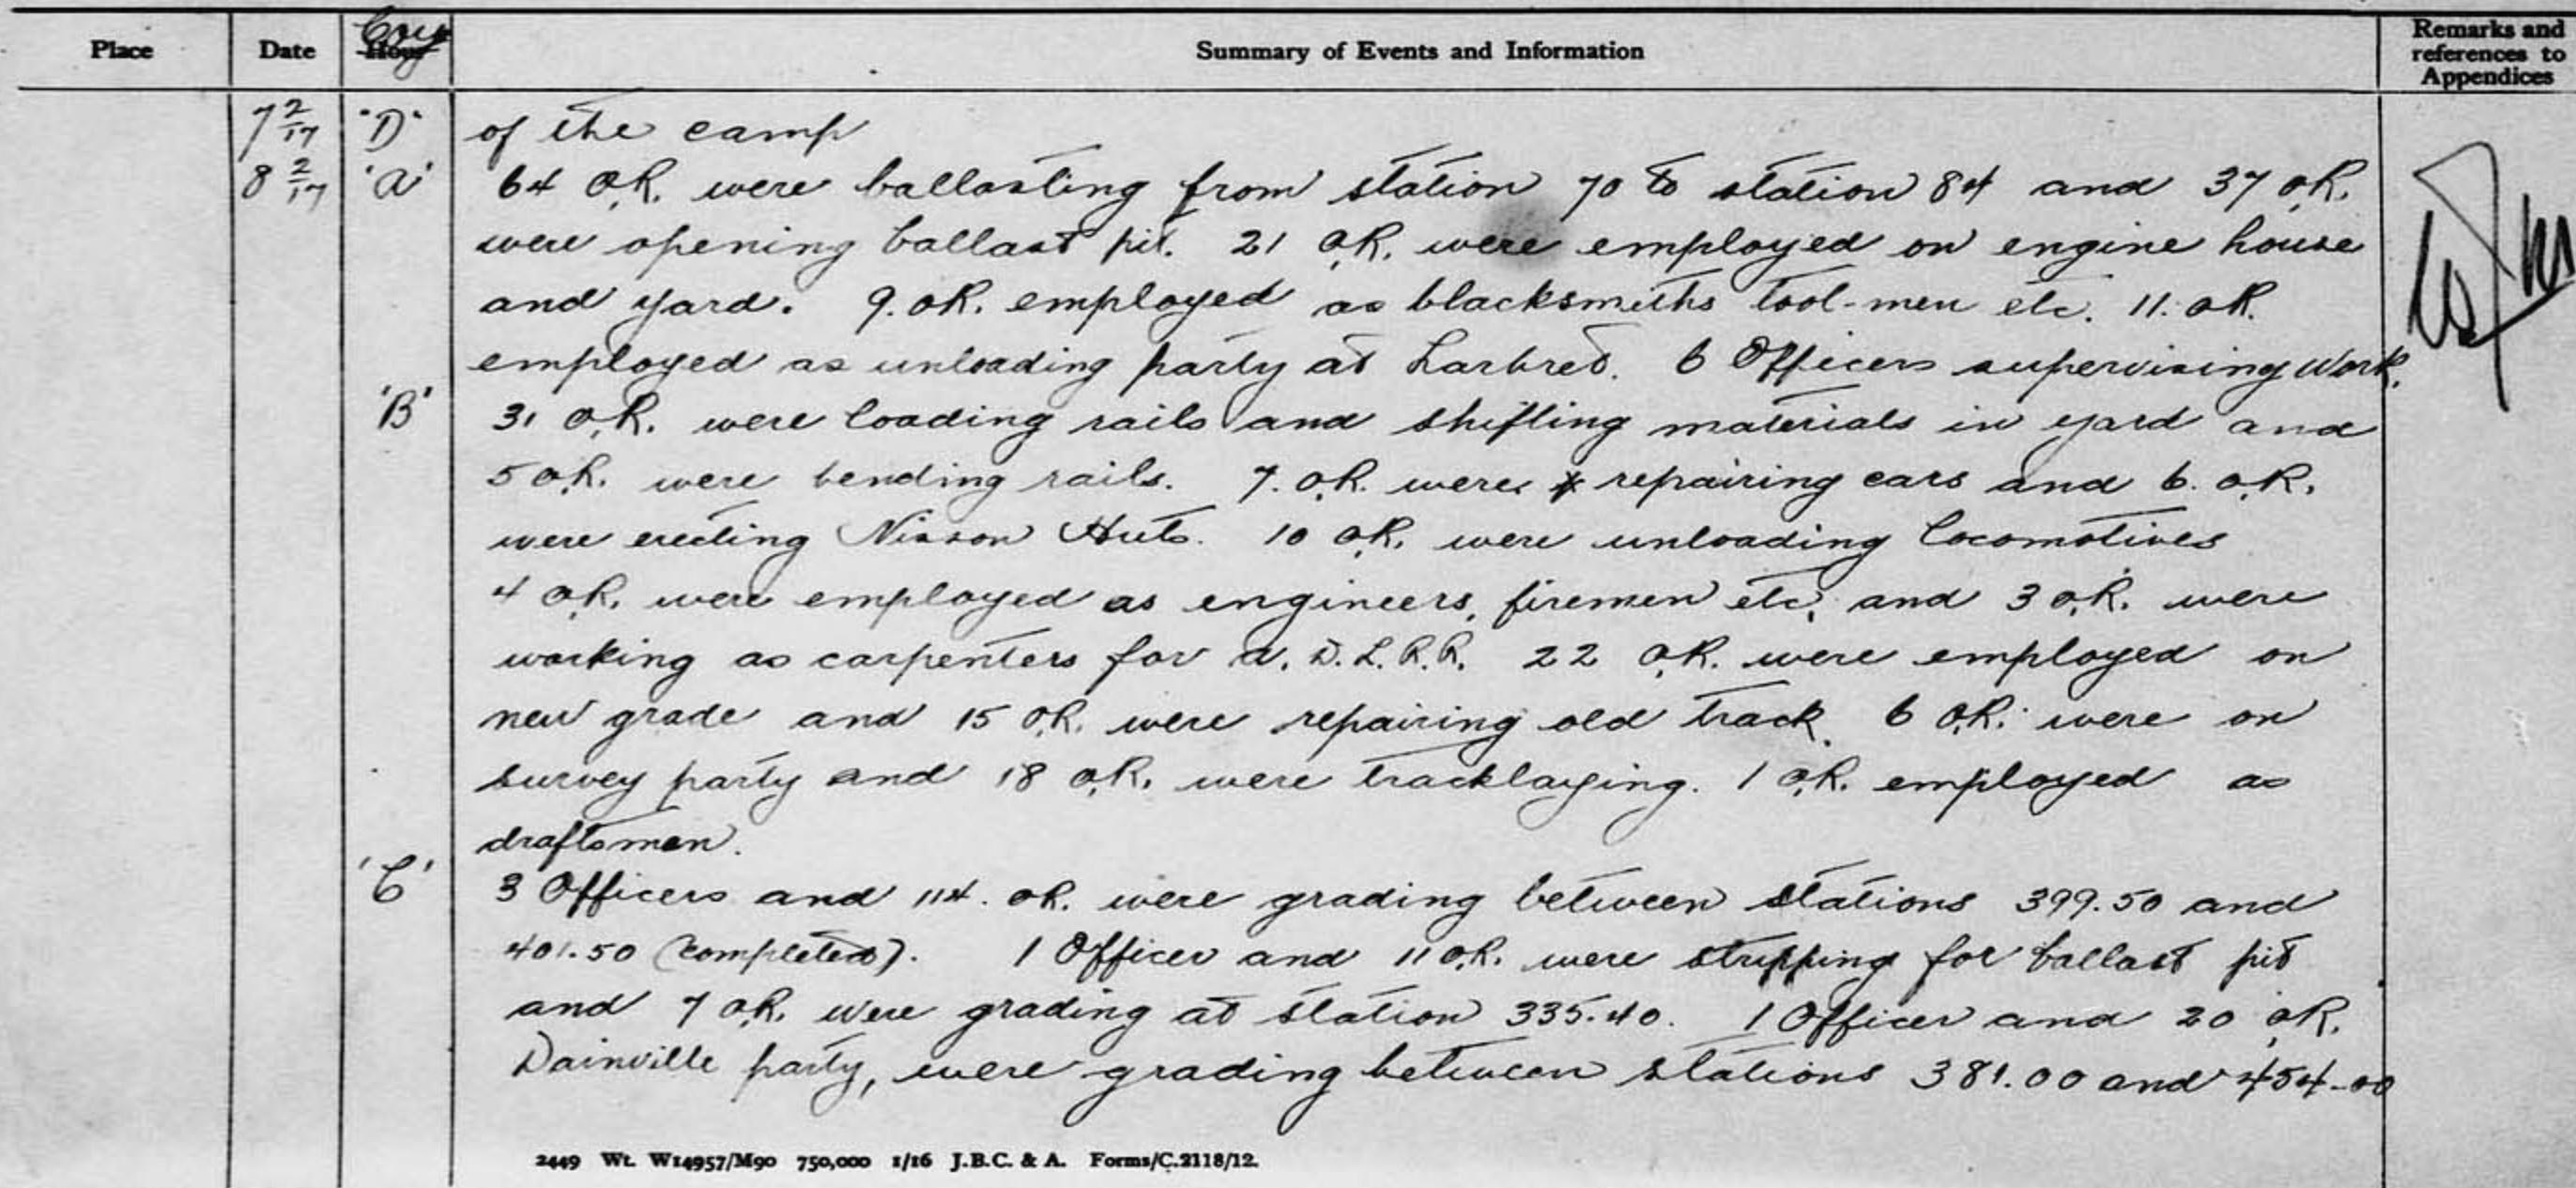 Place Date Hour Coy Summary of Events and Information Remarks and references to Appendices
7 2/17 "D" of the camp
8 2/17 'A' 64 O.R. were ballasting from station 70 to station 84 and 37 O.R.
were opening ballast pit. 21 O.R. were employed on engine house
and yard. 9. O.R. employed as blacksmiths tool-men etc. 11. O.R.
employed as unloading party at Larbret. 6 Officers supervising work.
'B' 31 O.R. were loading rails and shifting materials in yard and
5 O.R. were bending rails. 7. O.R. were repairing cars and 6. O.R.
were erecting Nisson Huts. 10 O.R. were unloading locomotives
4 O.R. were employed as engineers, firemen etc, and 3 O.R. were
working as carpenters for A.D.L.R.R. 22 O.R. were employed on
new grade and 15 O.R. were repairing old track. 6 O.R. were on
survey party and 18 O.R. were tracklaying. 1 O.R. employed as
draftsman.
'C' 3 Officers and 114. O.R. were grading between stations 399.50 and
401.50 (completed). 1 Officer and 11 O.R. were stripping for ballast pit
and 7 O.R. were grading at station 335.40. 1 Officer and 20 O.R.
Dainville party, were grading between stations 381.00 and 454-00
2449 Wt. W14957/M90 750,000 1/16 J.B.C. & A. Forms/C.2118/12.